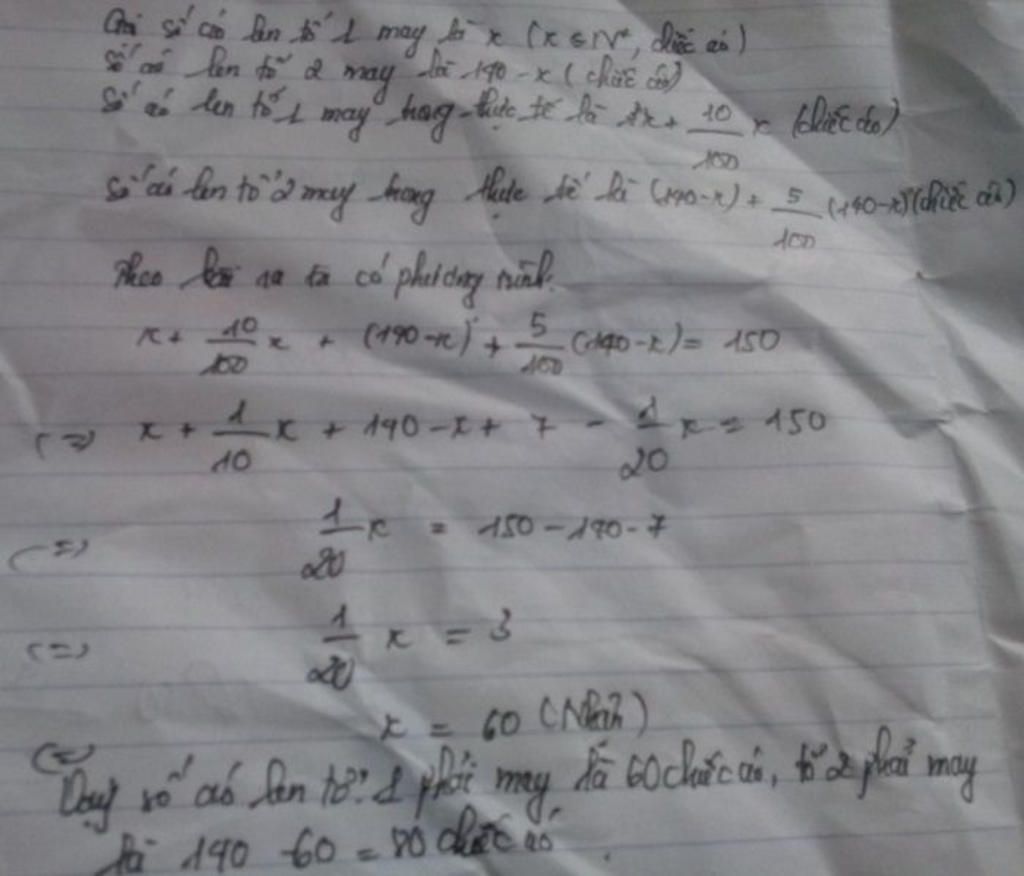 Gọi số áo len tổ 1 may là x (x ∈ N*, chiếc áo)
Số áo len tổ 2 may là 140 - x (chiếc áo)
Số áo len tổ 1 may trong thực tế là x + 10/100 x (chiếc áo)
Số áo len tổ 2 may trong thực tế là (140-x) + 5/100 (140-x) (chiếc áo)
Theo bài ra ta có phương trình:
x + 10/100 x + (140-x) + 5/100 (140-x) = 150
(=) x + 1/10 x + 140 - x + 7 - 1/20 x = 150
(=) 1/20 x = 150 - 140 - 7
(=) 1/20 x = 3
(=) x = 60 (Nhận)
Vậy số áo len tổ 1 phải may là 60 chiếc áo, tổ 2 phải may
là 140 - 60 = 80 chiếc áo.